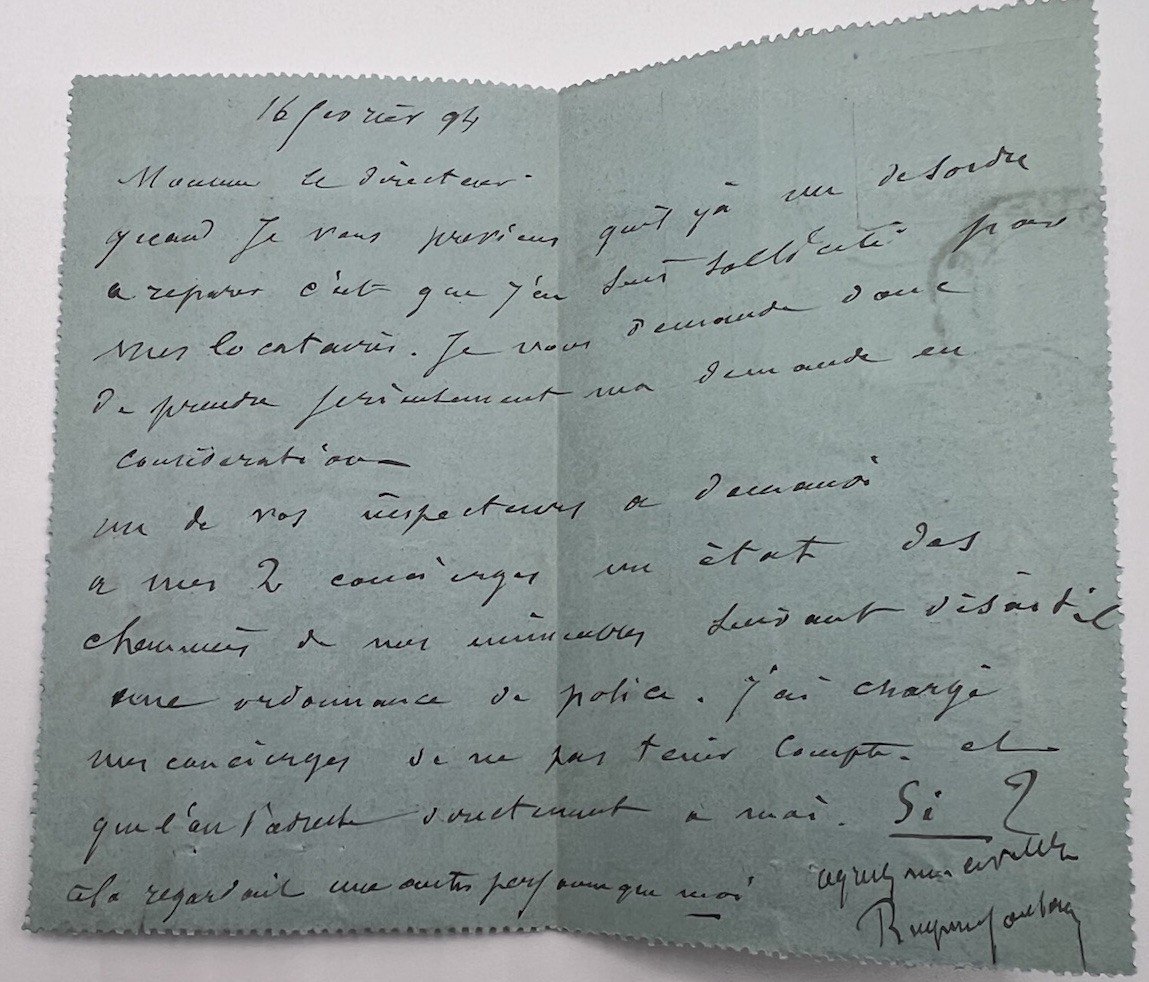 16 fevrier 94
Monsieur le directeur
quand Je vous previens qu'il y à un desordre
a reparer c'est que j'en suis sollicité par
mes locataires. Je vous demande donc
de prendre serieusement ma demande en
consideration
un de vos inspecteurs a demandé
a mes 2 concierges un état des
cheminées de mes immeubles suivant disait-il
une ordonnance de police. J'ai chargé
mes concierges de ne pas tenir compte. et
que l'on s'adresse directement a moi. Si
cela regardait une autre personne que moi
agreez mes civilités